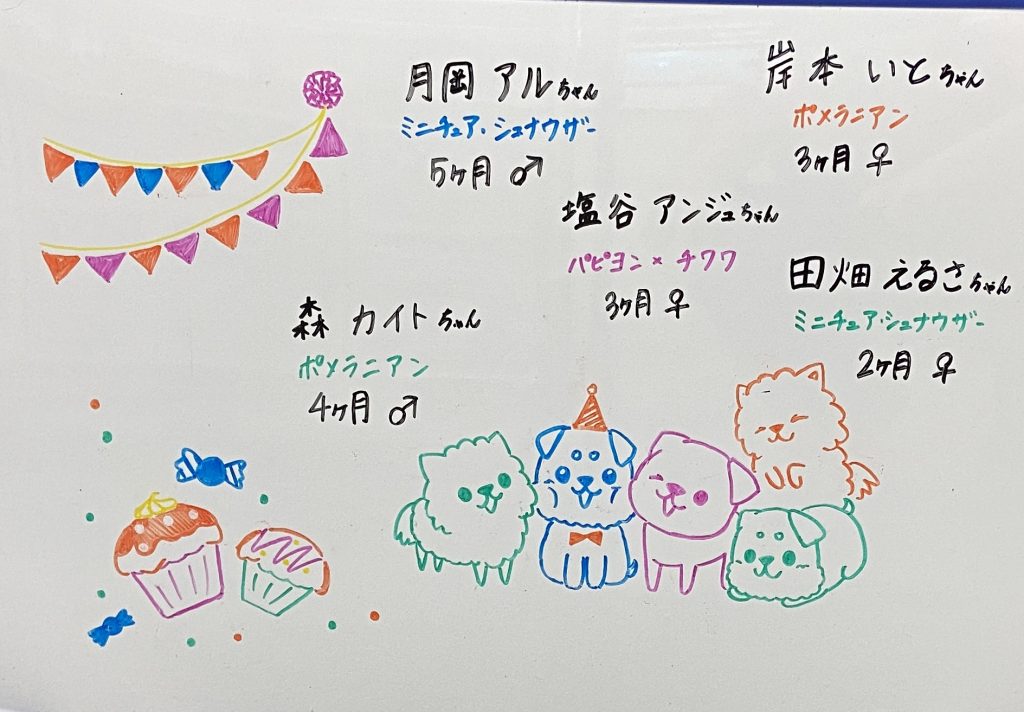 月岡 アルちゃん
ミニチュア・シュナウザー
5ヶ月 ♂
岸本 いとちゃん
ポメラニアン
3ヶ月 ♀
塩谷 アンジュちゃん
パピヨン×チワワ
3ヶ月 ♀
田畑 えるさちゃん
ミニチュア・シュナウザー
2ヶ月 ♀
森 カイトちゃん
ポメラニアン
4ヶ月 ♂